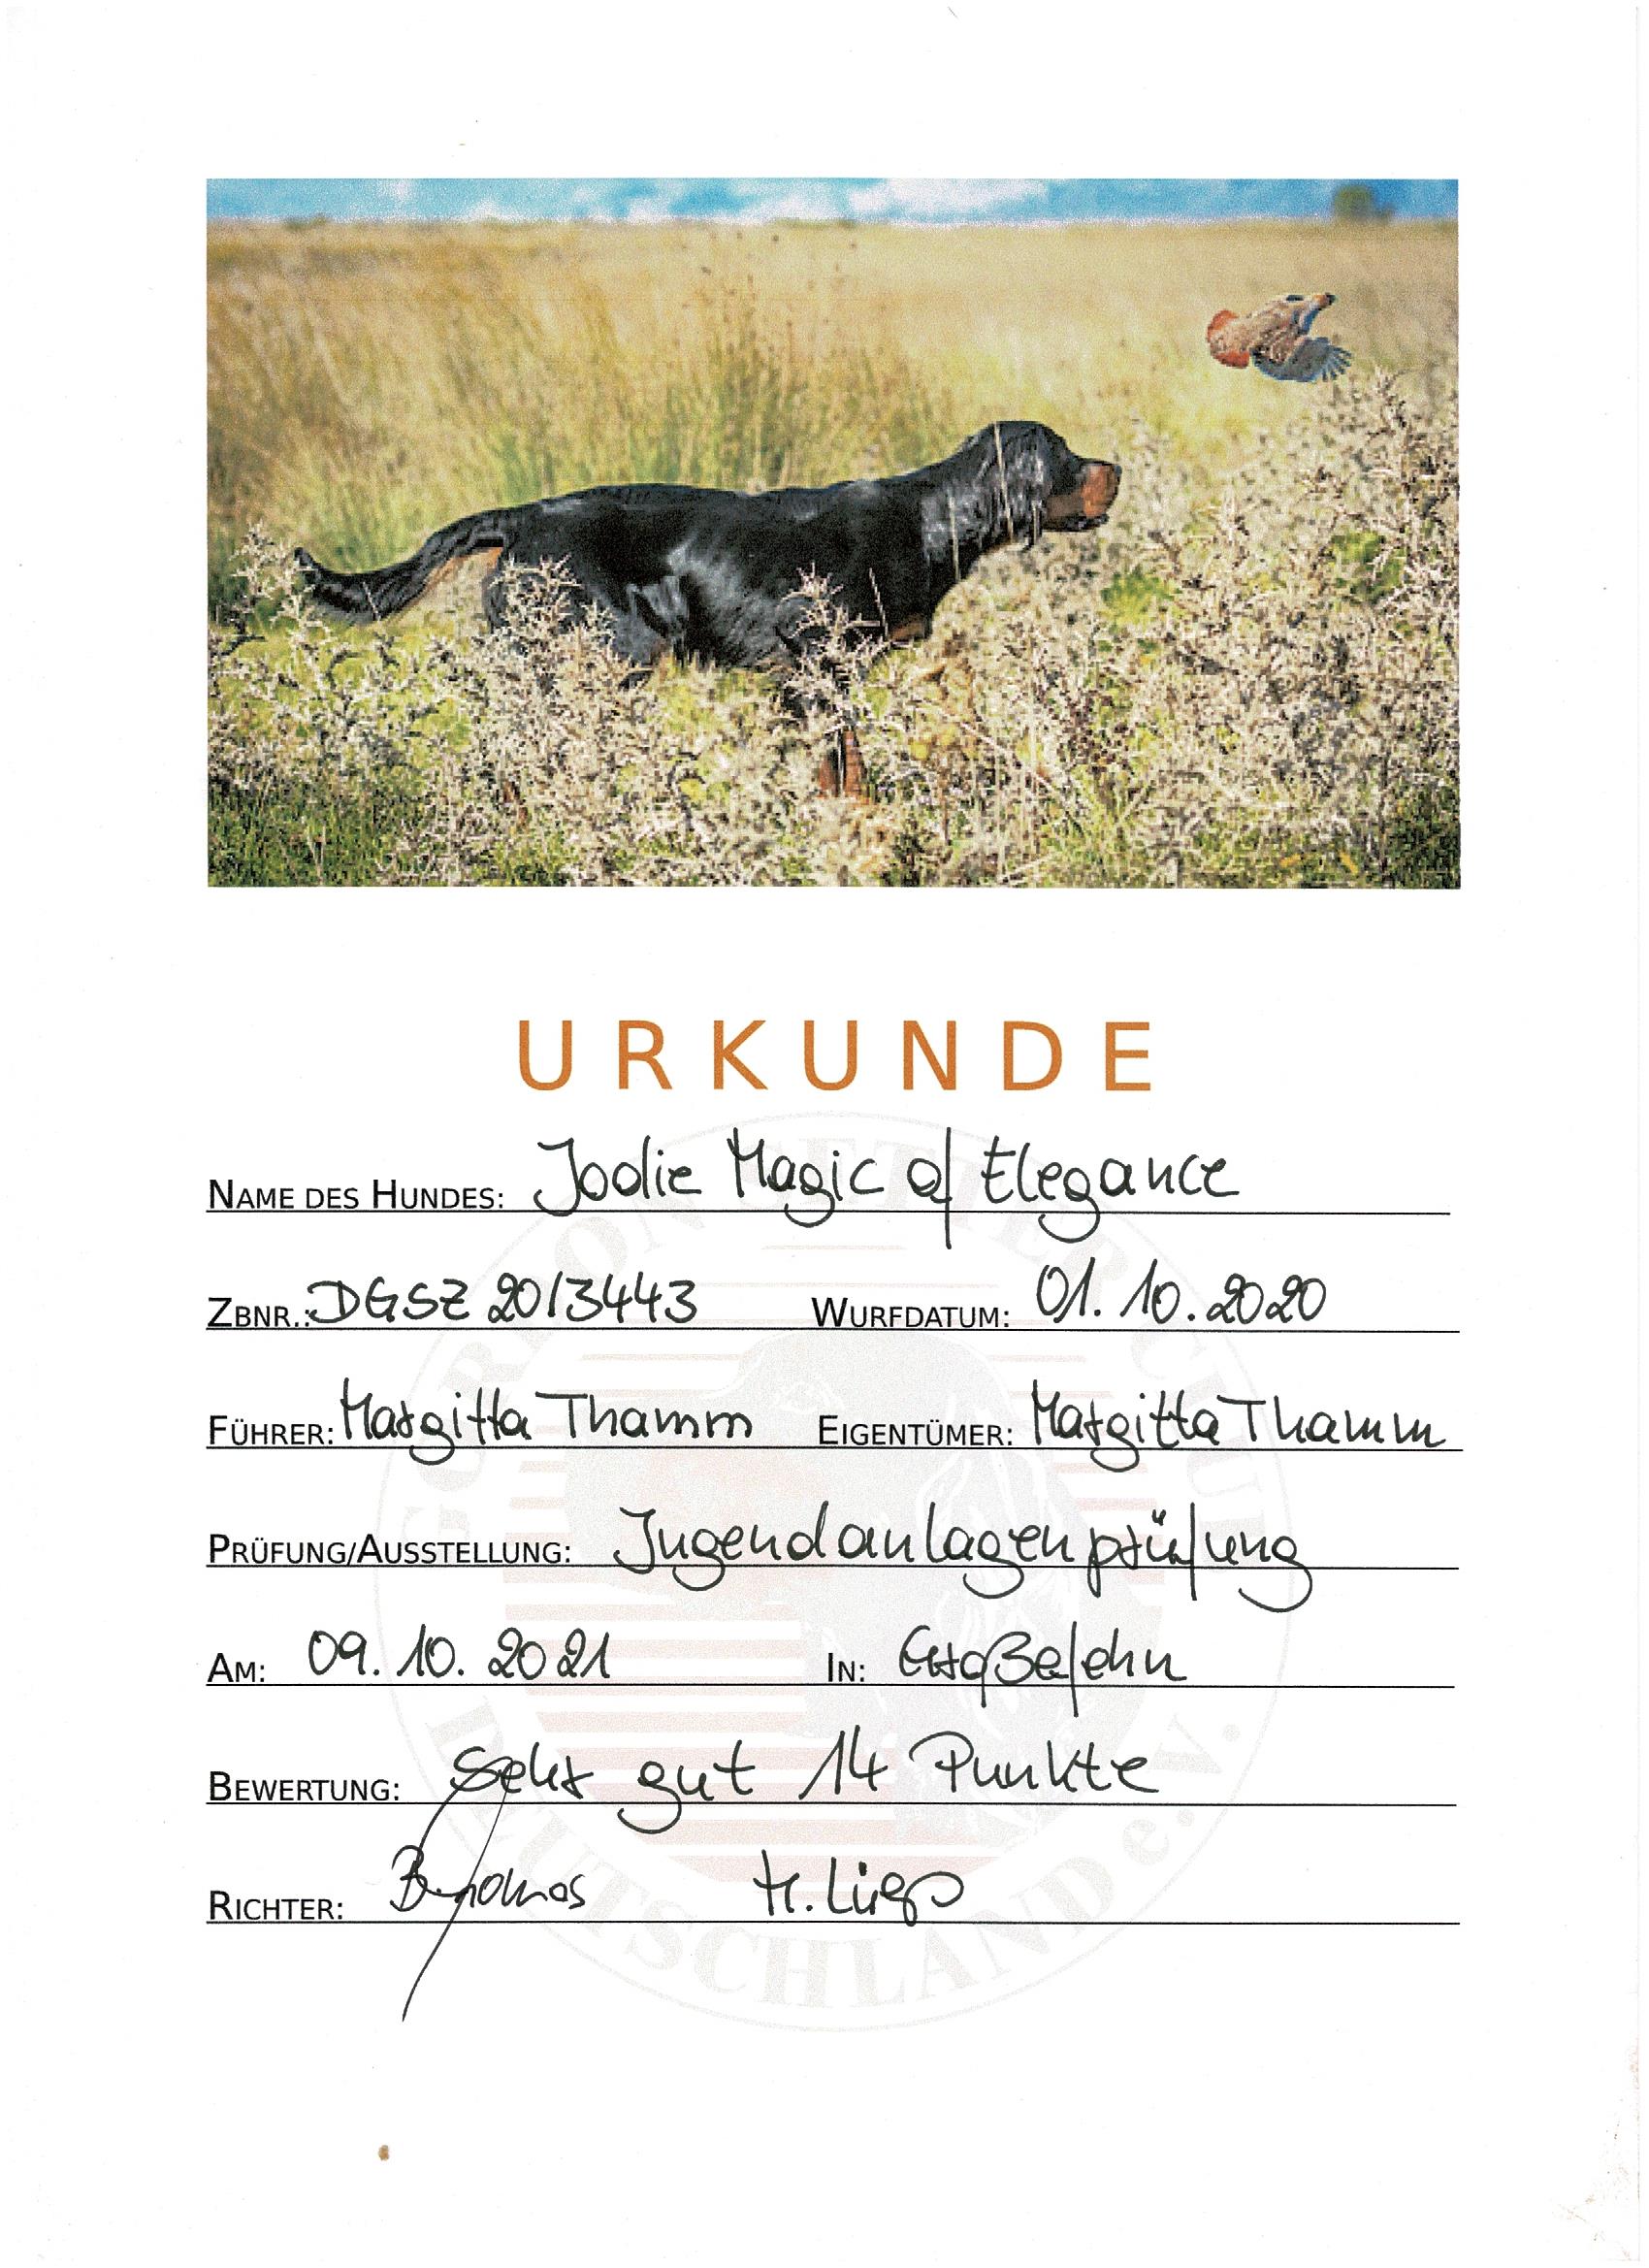 URKUNDE
NAME DES HUNDES: Jodie Magic of Elegance
ZBNR.: DGSZ 20/3443 WURFDATUM: 01.10.2020
FÜHRER: Margitta Thamm EIGENTÜMER: Margitta Thamm
PRÜFUNG/AUSSTELLUNG: Jugendanlagenprüfung
AM: 09.10.2021 IN: Großefehn
BEWERTUNG: Sehr gut 14 Punkte
RICHTER: H.
GORDON SETTER CLUB
DEUTSCHLAND e.V.